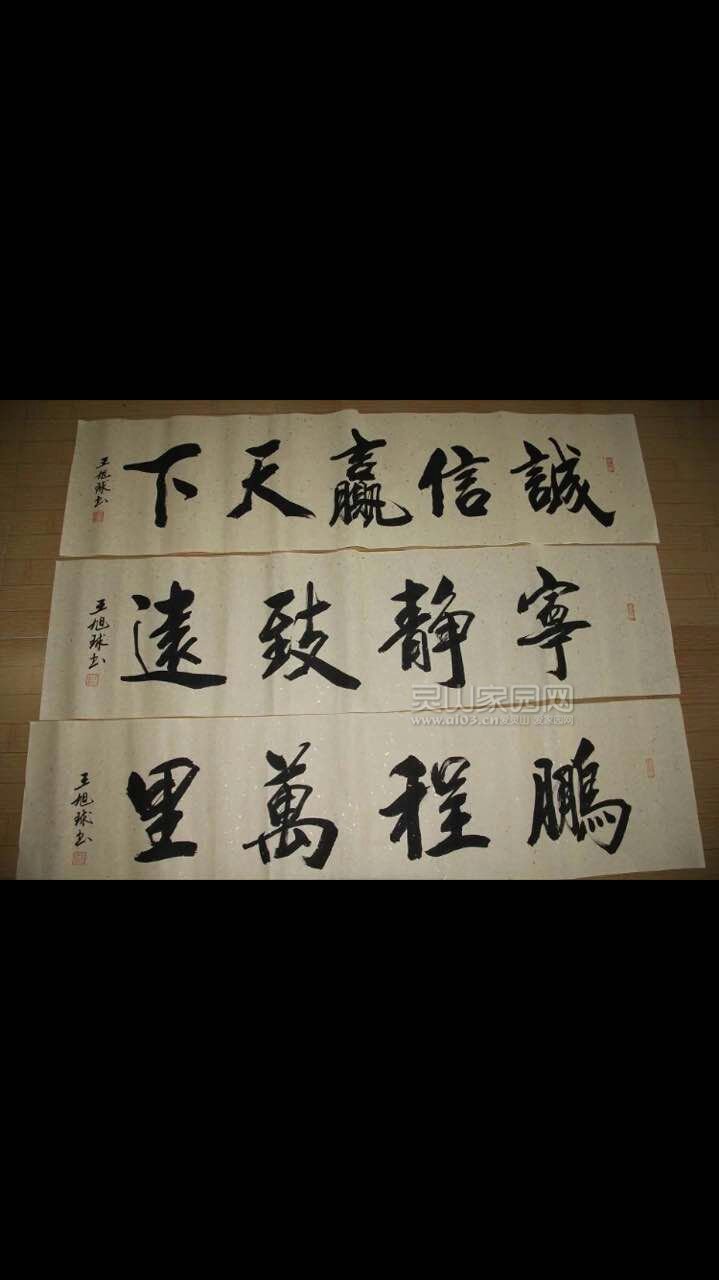 誠信赢天下
王旭球书
寧静致遠
王旭球书
灵山家园网
www.al03.cn爱灵山 爱家园网
鵬程萬里
王旭球书